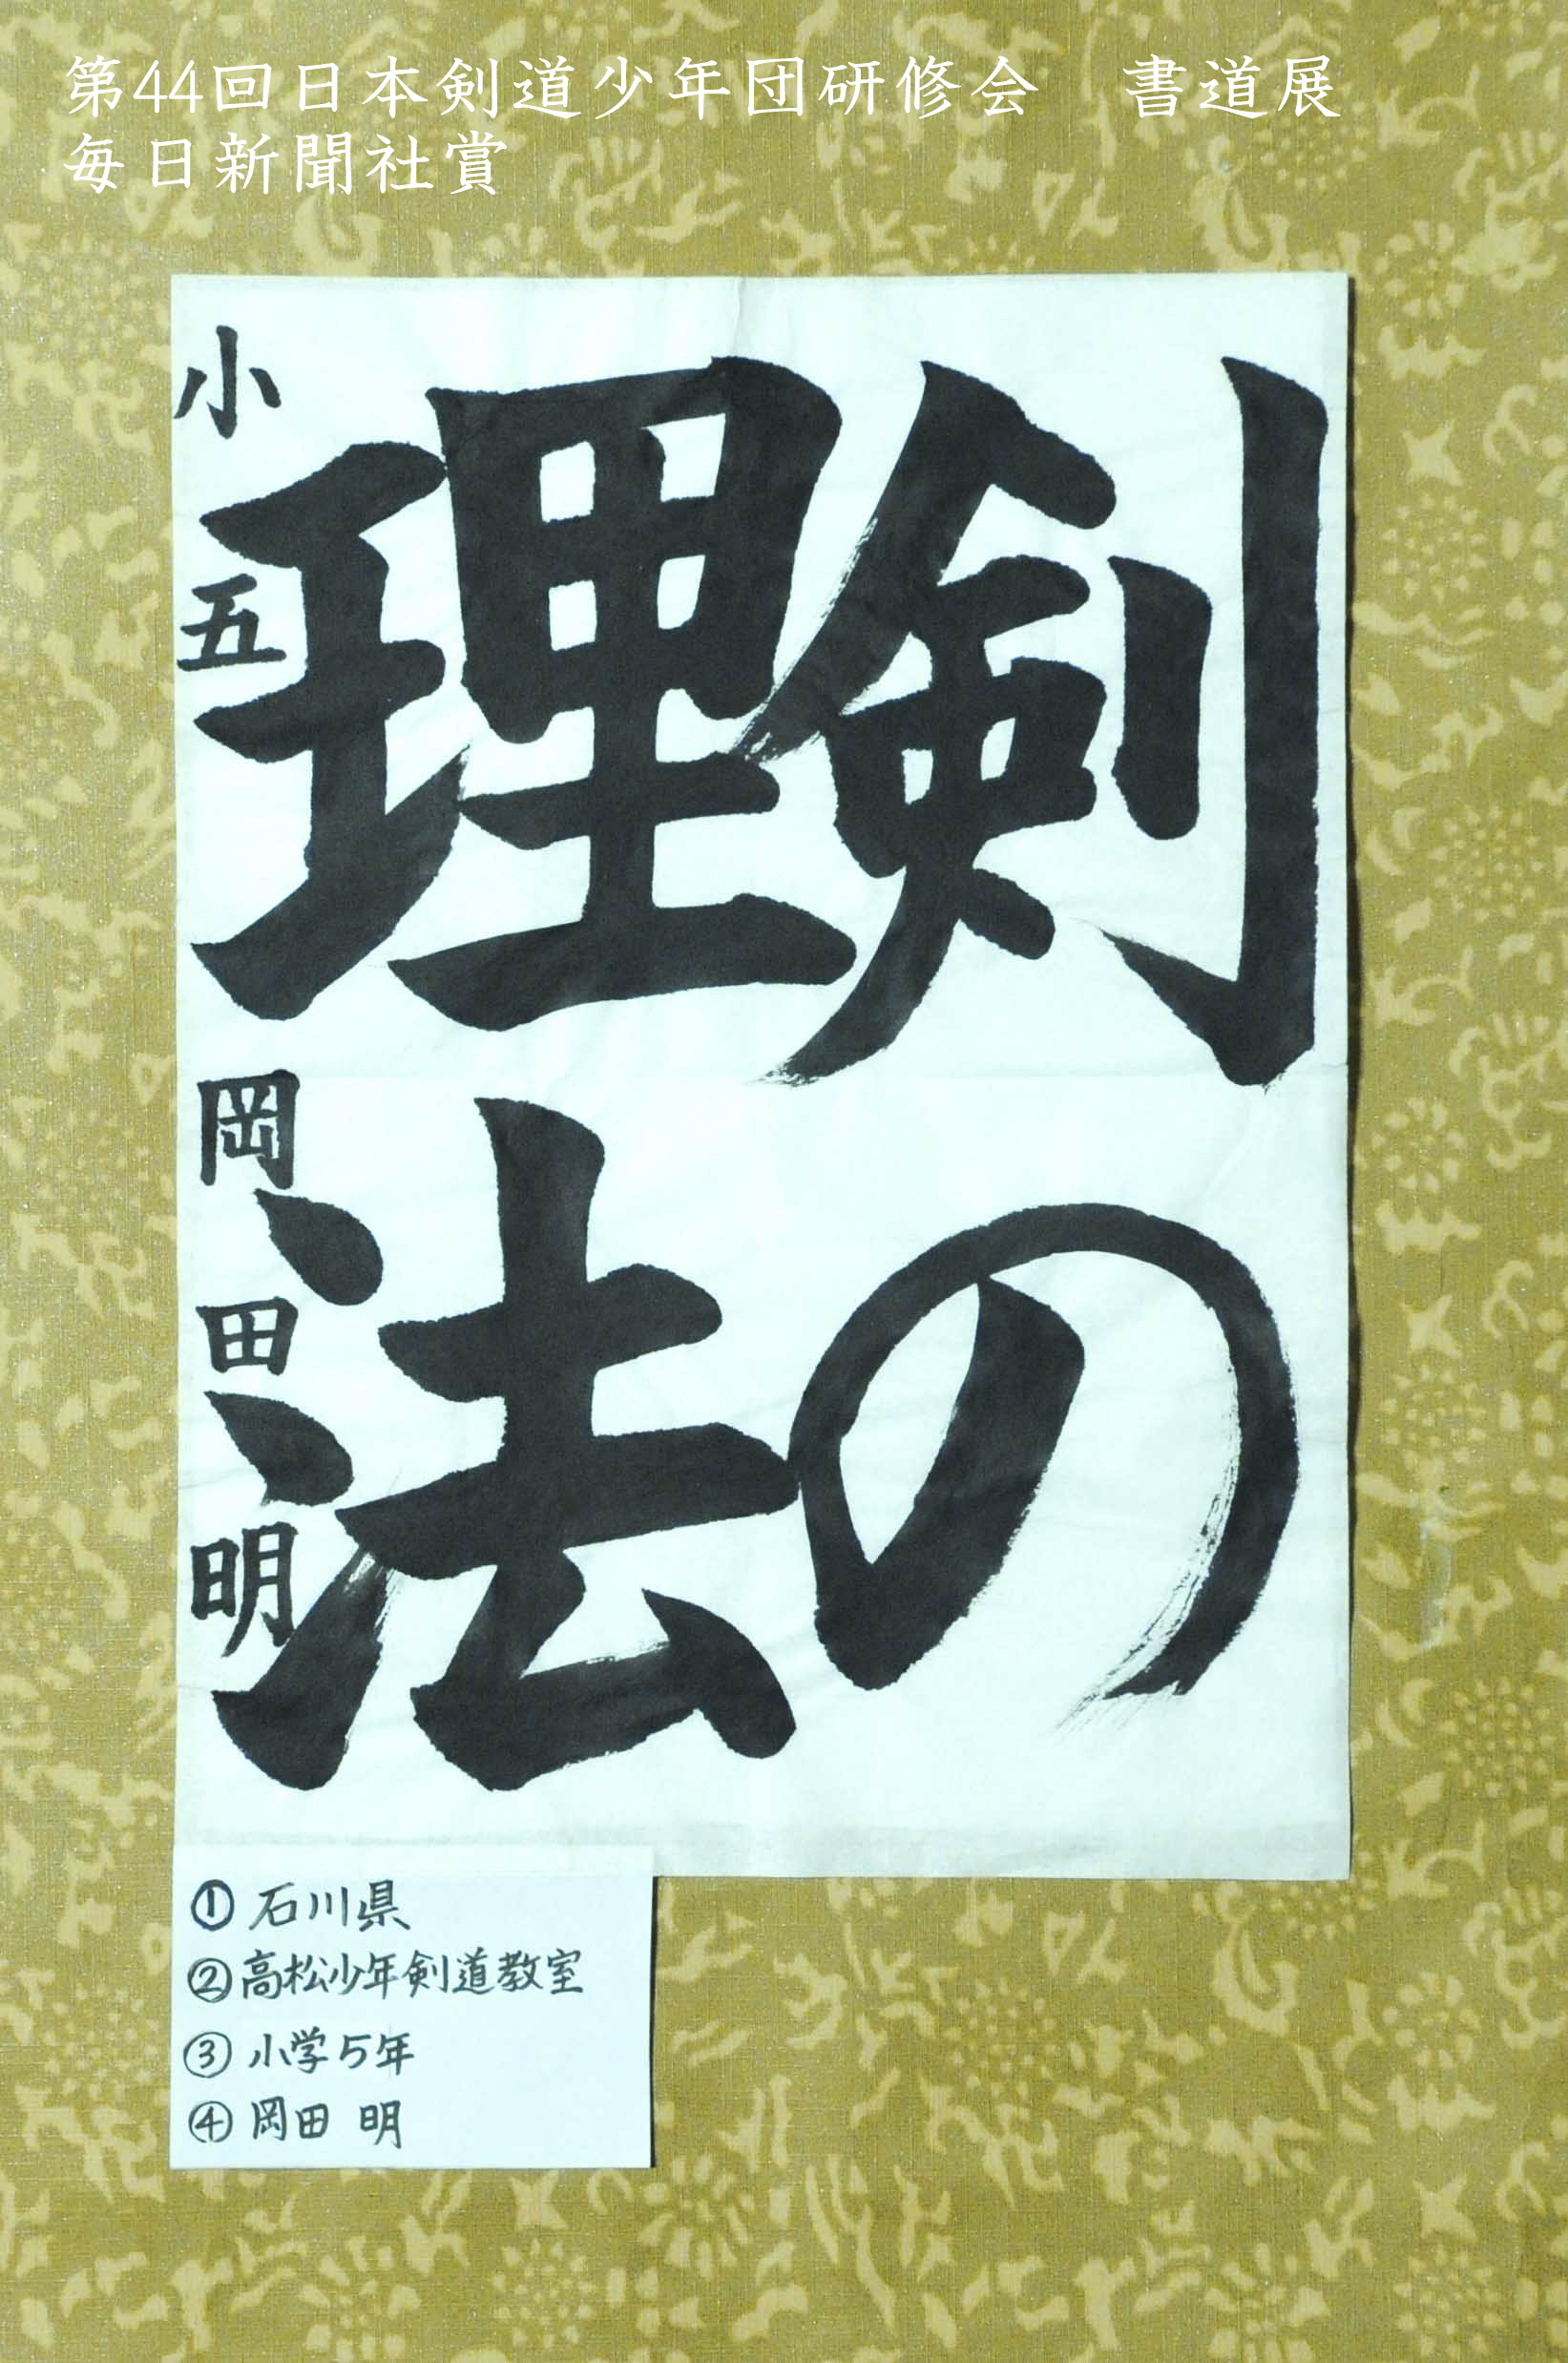 第44回日本剣道少年団研修会　書道展
毎日新聞社賞
剣の
理法
小五　岡田明
① 石川県
② 高松少年剣道教室
③ 小学5年
④ 岡田 明